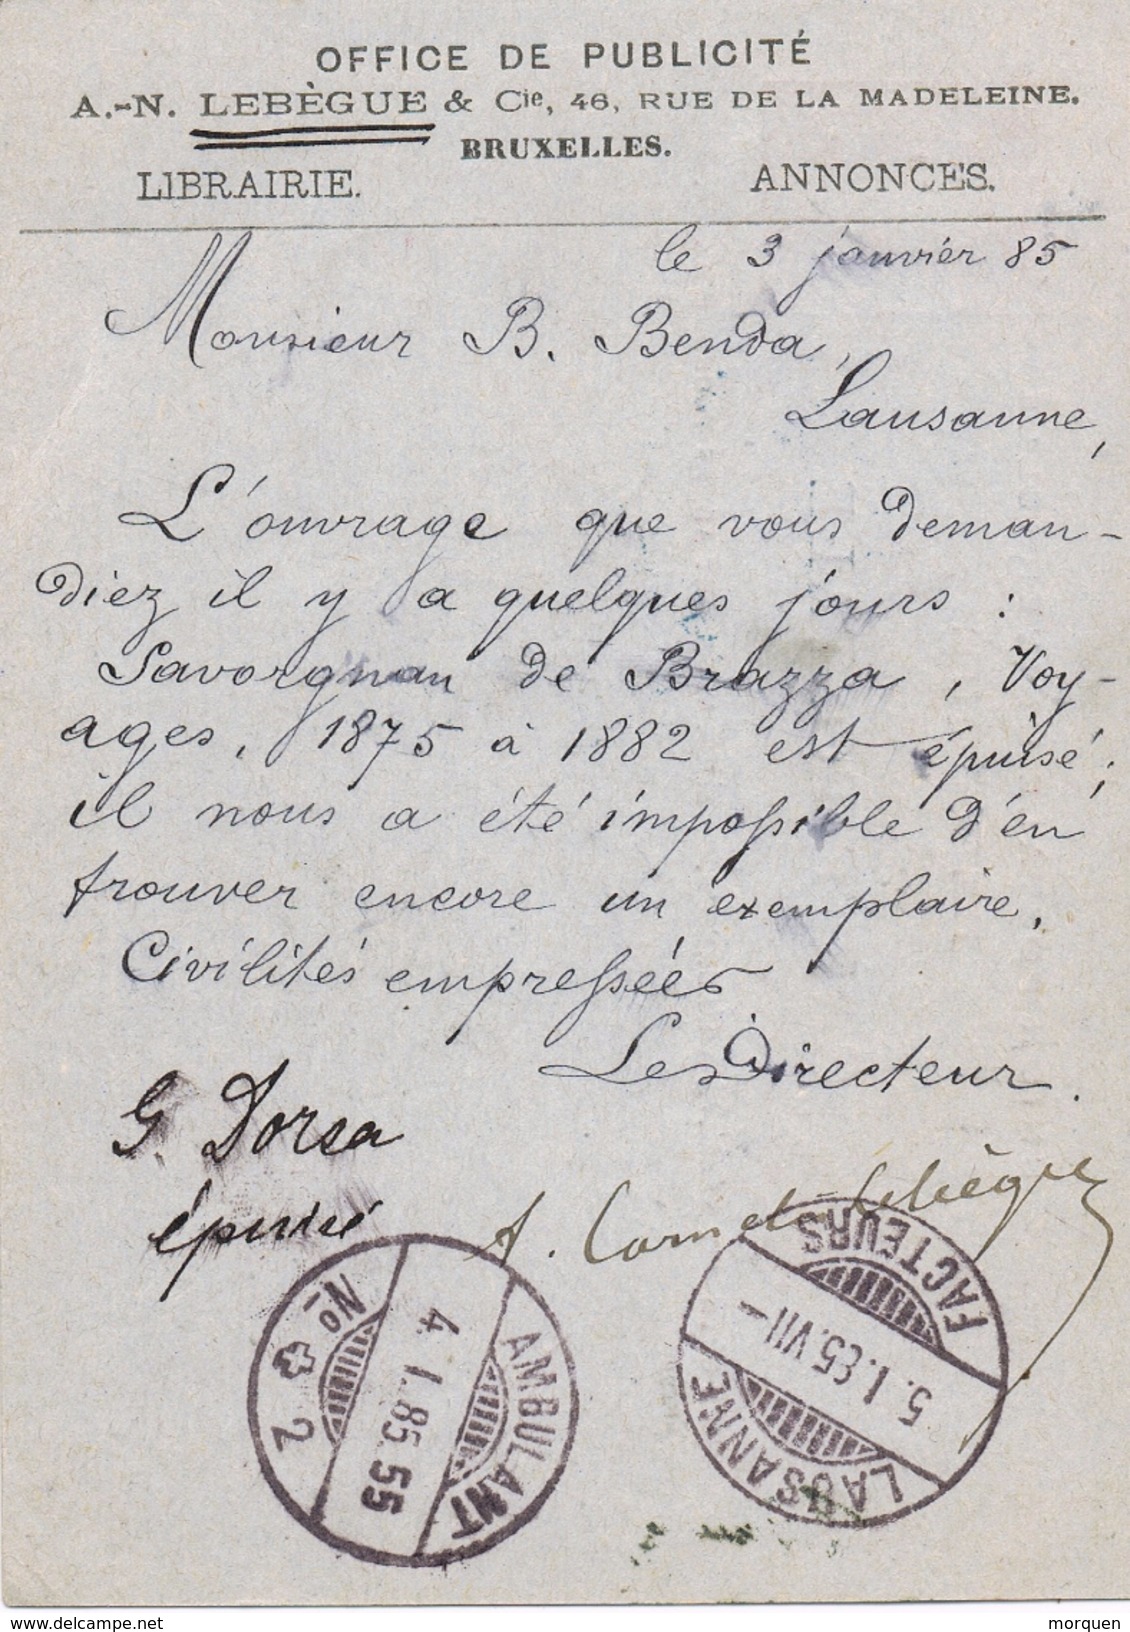 OFFICE DE PUBLICITÉ
A.-N. LEBÈGUE & Cie, 46, RUE DE LA MADELEINE.
BRUXELLES.
LIBRAIRIE. ANNONCES.
le 3 janvier 85
Monsieur B. Benda,
Lausanne,
L'ouvrage que vous deman-
diez il y a quelques jours :
Savorgnan de Brazza, Voy-
ages, 1875 à 1882 est épuisé;
il nous a été impossible d'en
trouver encore un exemplaire.
Civilités empressées
Le Directeur.
G. Dorsa
épuisé
A. Lebègue
AMBULANT
4.I.85.55
No 2
FACTEURS
5.I.85.VII-
LAUSANNE
delcampe.net
morquen